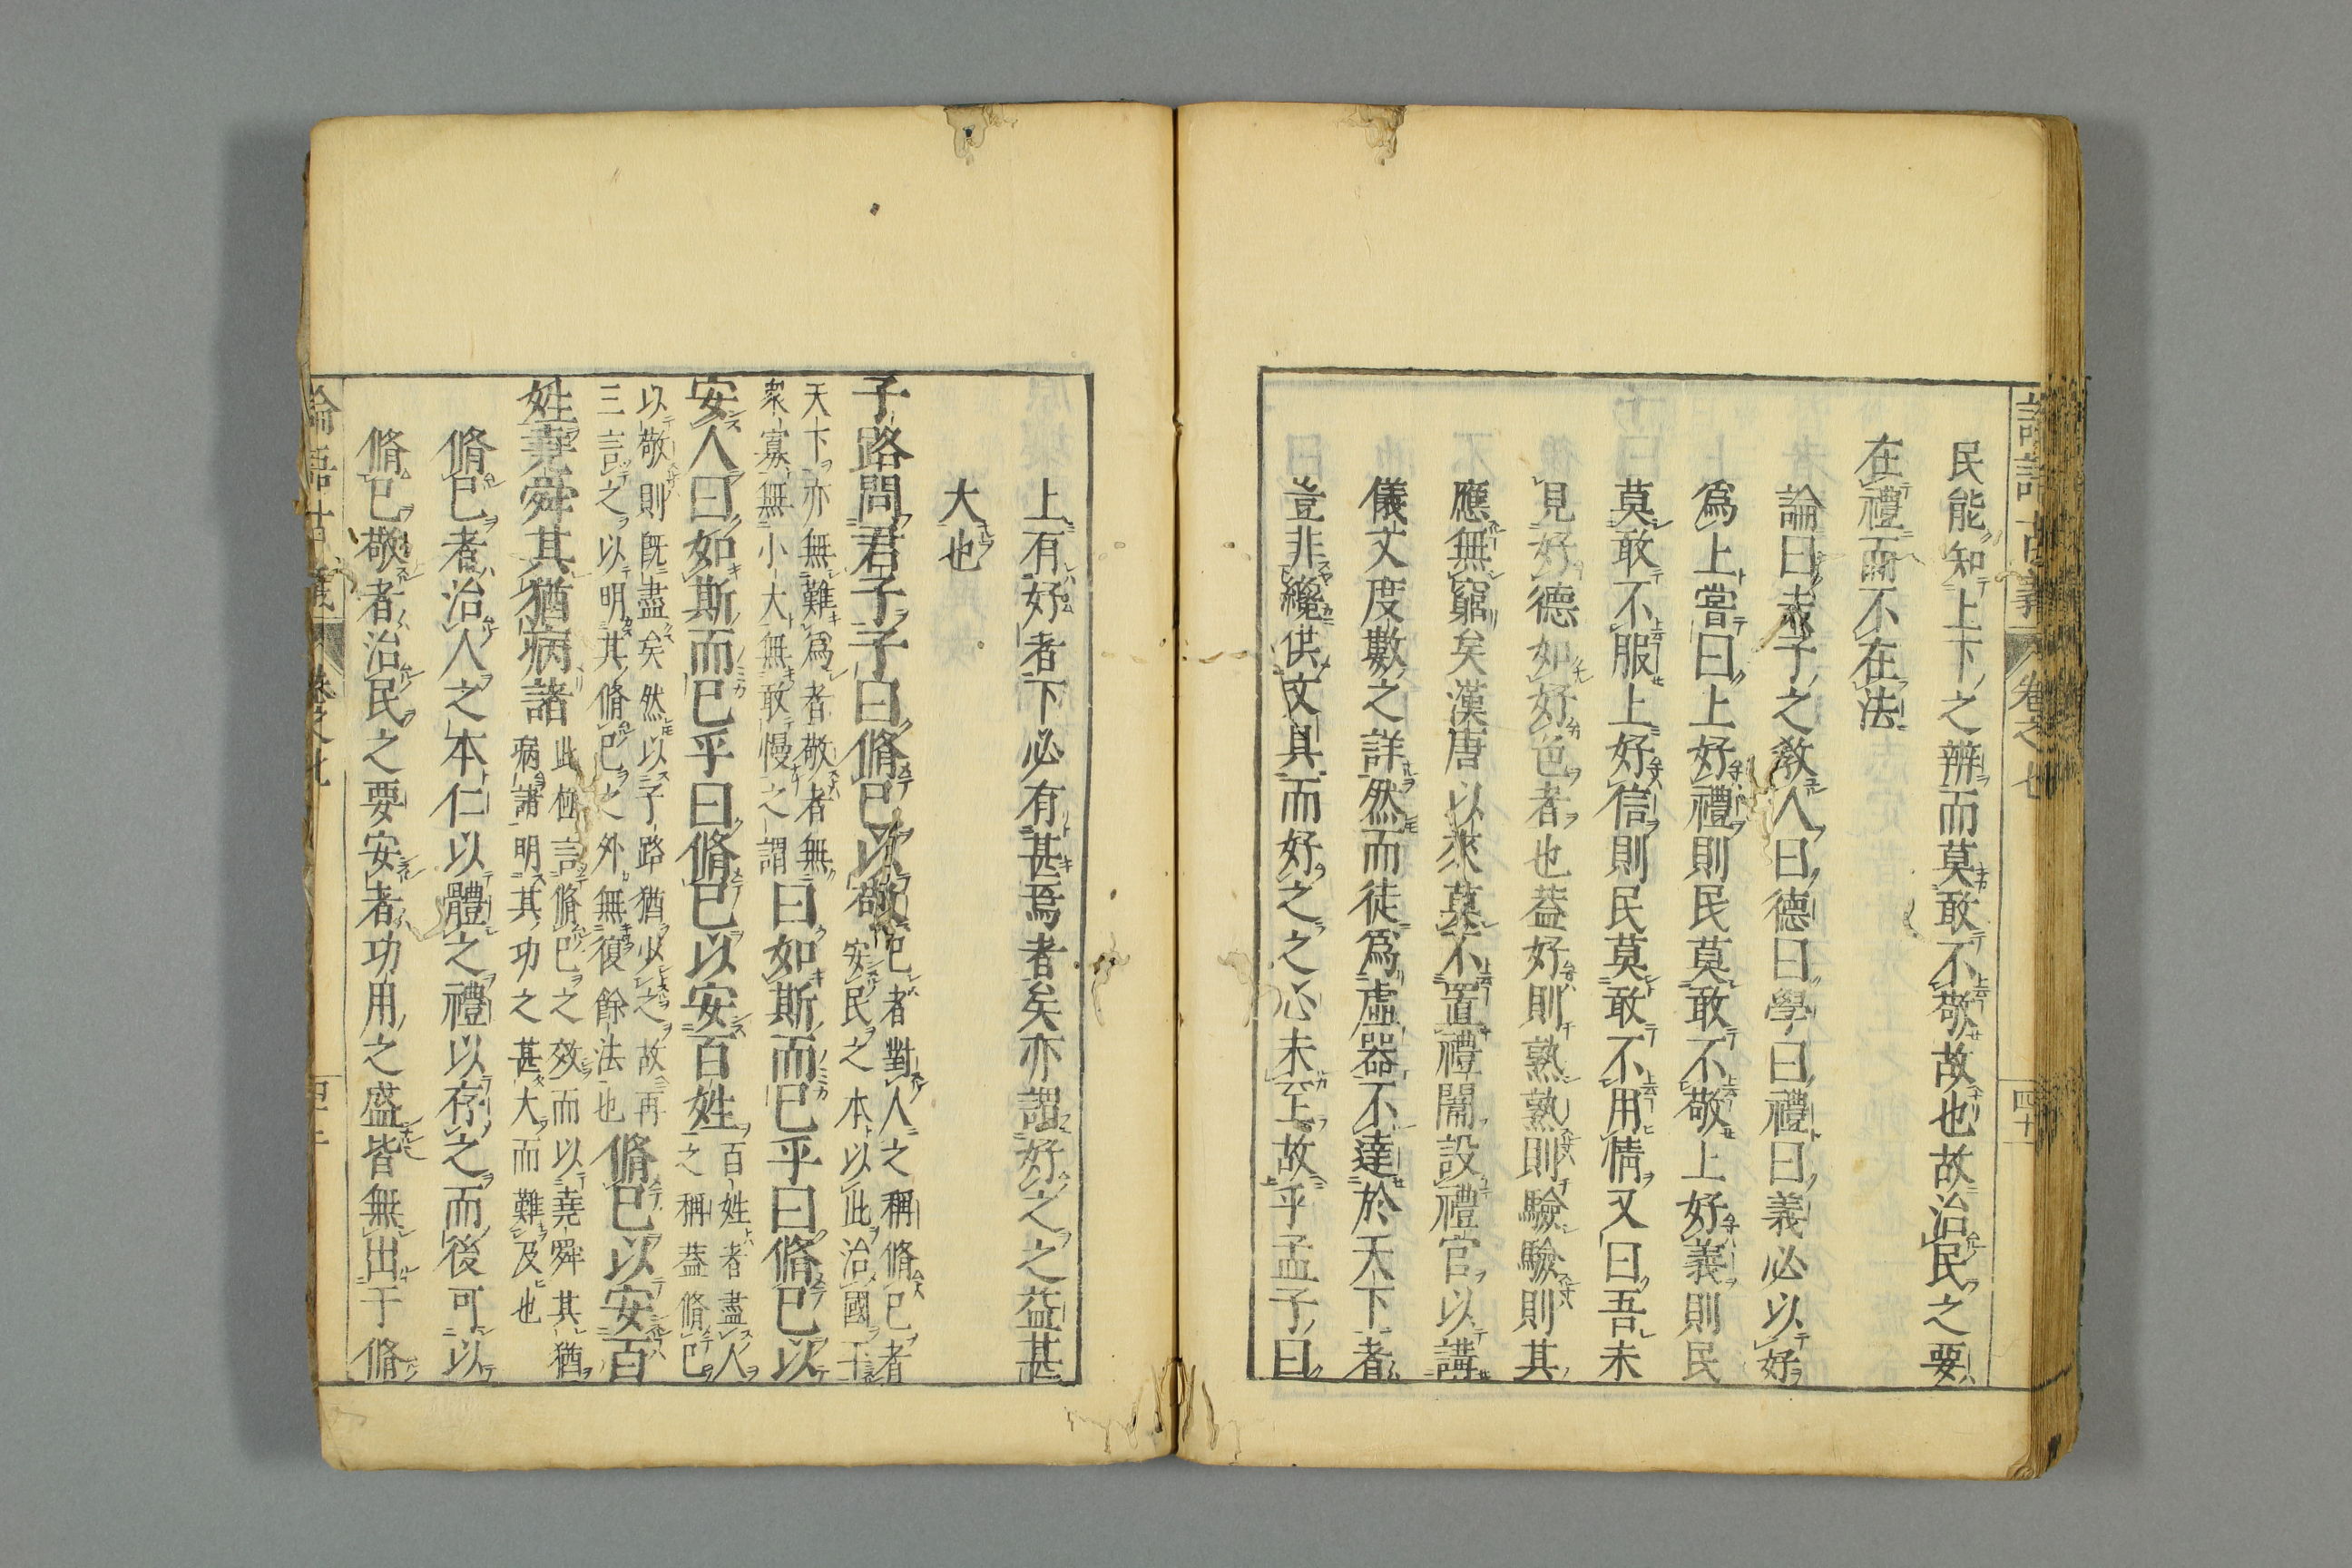 民能知上下之辨而莫敢不敬故也故治民之要
在禮而不在法
論曰夫子之敎人曰德曰學曰禮曰義必以好
爲上嘗曰上好禮則民莫敢不敬上好義則民
莫敢不服上好信則民莫敢不用情又曰吾未
見好德如好色者也葢好則熟熟則驗驗則其
應無窮矣漢唐以來莫不置禮閣設禮官以講
儀文度數之詳然而徒爲虛器不達於天下者
豈非纔供文具而好之之心未至上故乎孟子曰
卷之七
四十
上有好者下必有甚焉者矣亦謂好之之益甚
大也
子路問君子子曰脩己以敬
己者對人之稱脩己者
安民之本以此治國于
天下亦無難爲者敬者無
衆寡無小大無敢慢之謂
曰如斯而已乎曰脩己以
安人曰如斯而已乎曰脩己以安百姓
百姓者盡人
之稱葢脩己
以敬則旣盡矣然以子路猶少之故再
三言之以明其脩己之外無復餘法也
脩己以安百
姓堯舜其猶病諸
此極言脩己之效而以堯舜其猶
病諸明其功之甚大而難及也
脩己者治人之本仁以體之禮以存之而後可以
脩己敬者治民之要安者功用之盛皆無出于脩